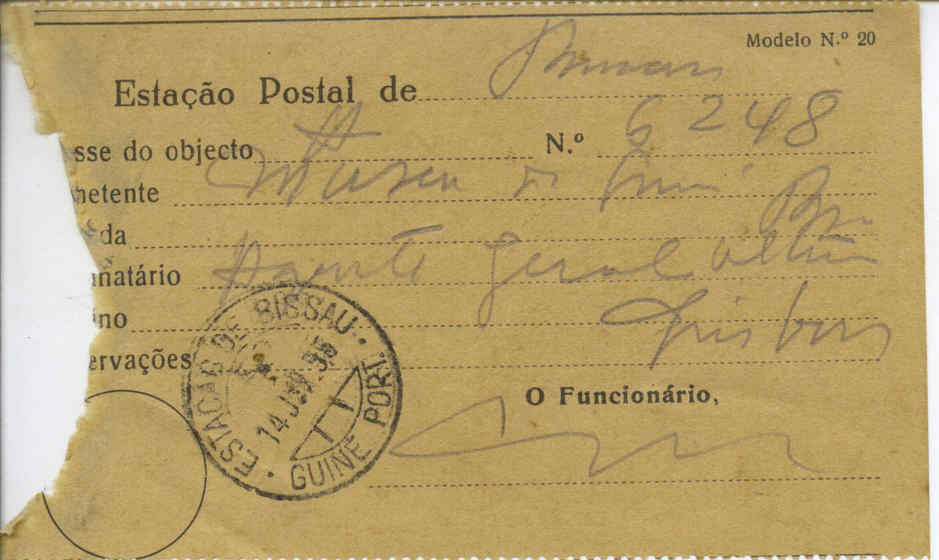 Modelo N.º 20
Estação Postal de
sse do objecto N.º 6248
netente Museu
da
natário Agente Geral
no Lisboa
ervações
ESTAÇÃO DE BISSAU
14 JUL
GUINÉ PORT.
O Funcionário,